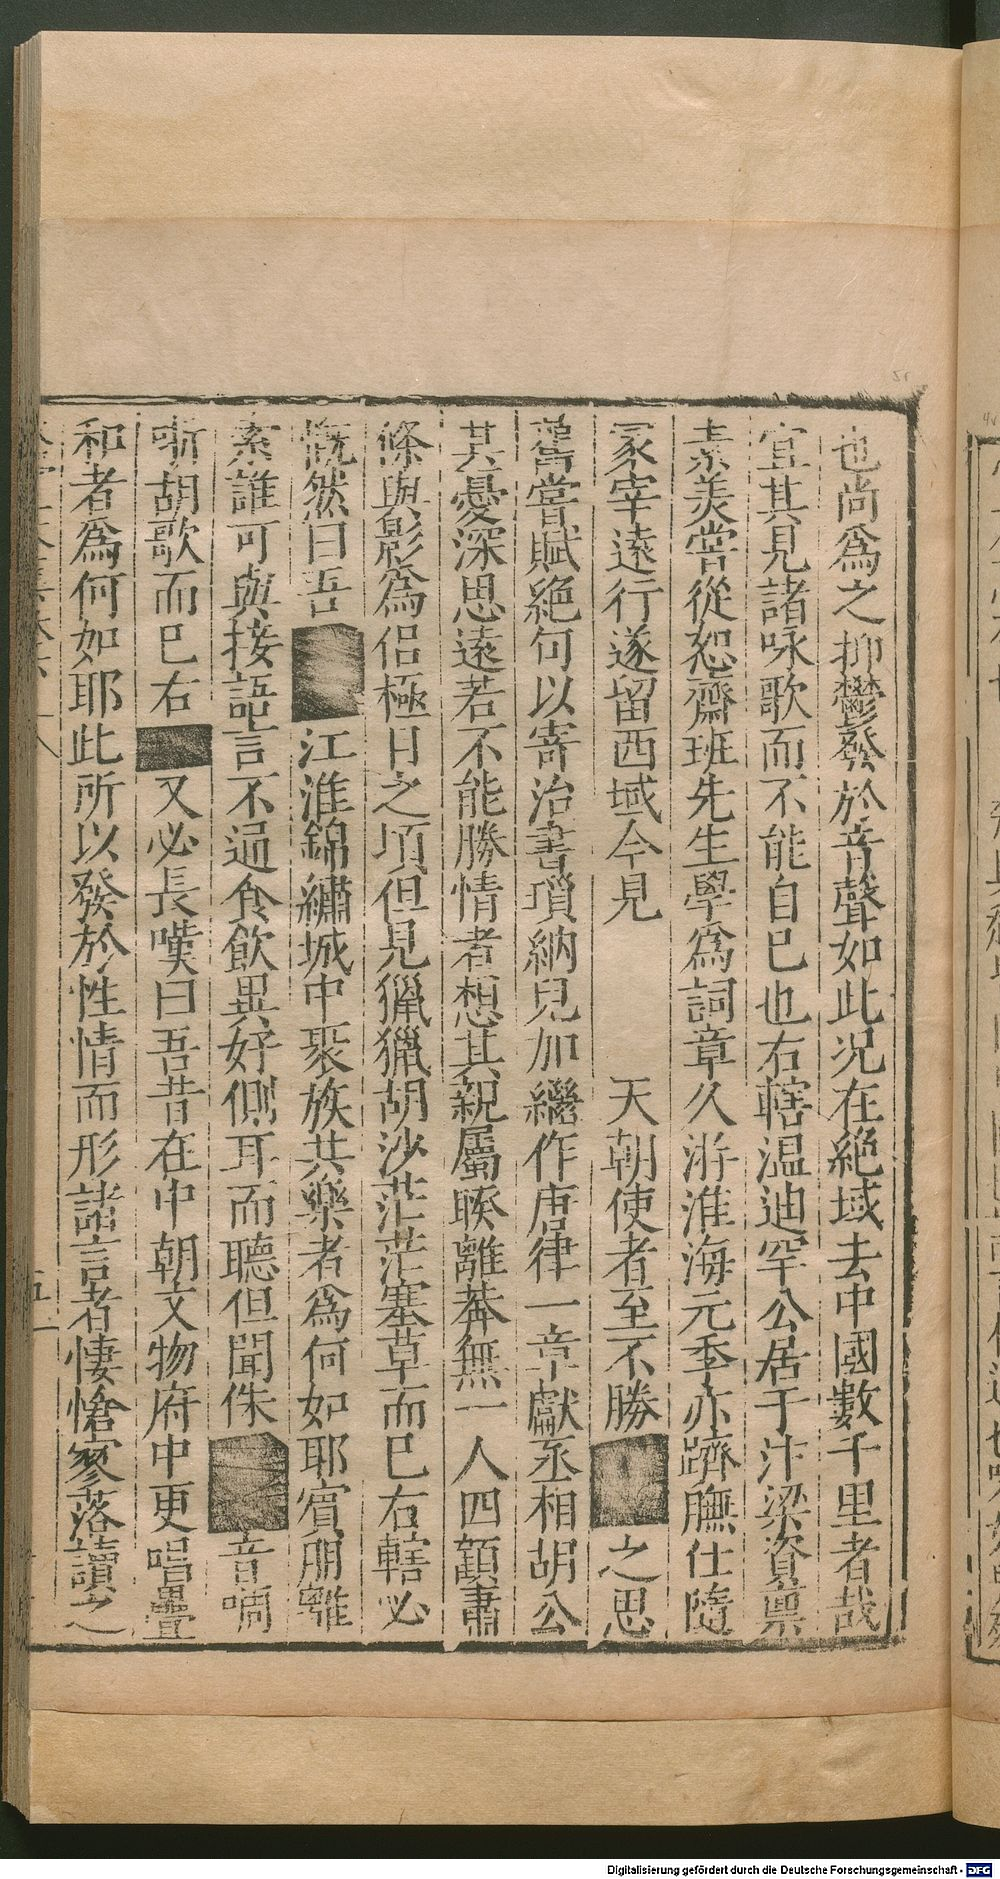 也尚爲之抑鬱發於音聲如此况在絶域去中國數千里者哉
宜其見諸咏歌而不能自已也右轄温迪罕公居于汴梁資禀
素羙甞從恕齋班先生學爲詞章久游淮海元季亦躋膴仕隨
冢宰遠行遂留西域今見 天朝使者至不勝■之思
舊甞賦絶句以寄治書瑣納兒加繼作唐律一章獻丞相胡公
其憂深思遠若不能勝情者想其親屬睽離莽無一人四顧肅
條與影爲侣極目之頃但見獵獵胡沙茫茫塞草而已右轄必
慨然曰吾■江淮錦繡城中聚族共樂者爲何如耶賓朋離
索誰可與接語言不通食飲異好側耳而聽但聞侏■音啁
哳胡歌而已右■又必長嘆曰吾昔在中朝文物府中更唱疊
和者爲何如耶此所以發於性情而形諸言者悽愴寥落讀之
Digitalisierung gefördert durch die Deutsche Forschungsgemeinschaft - DFG